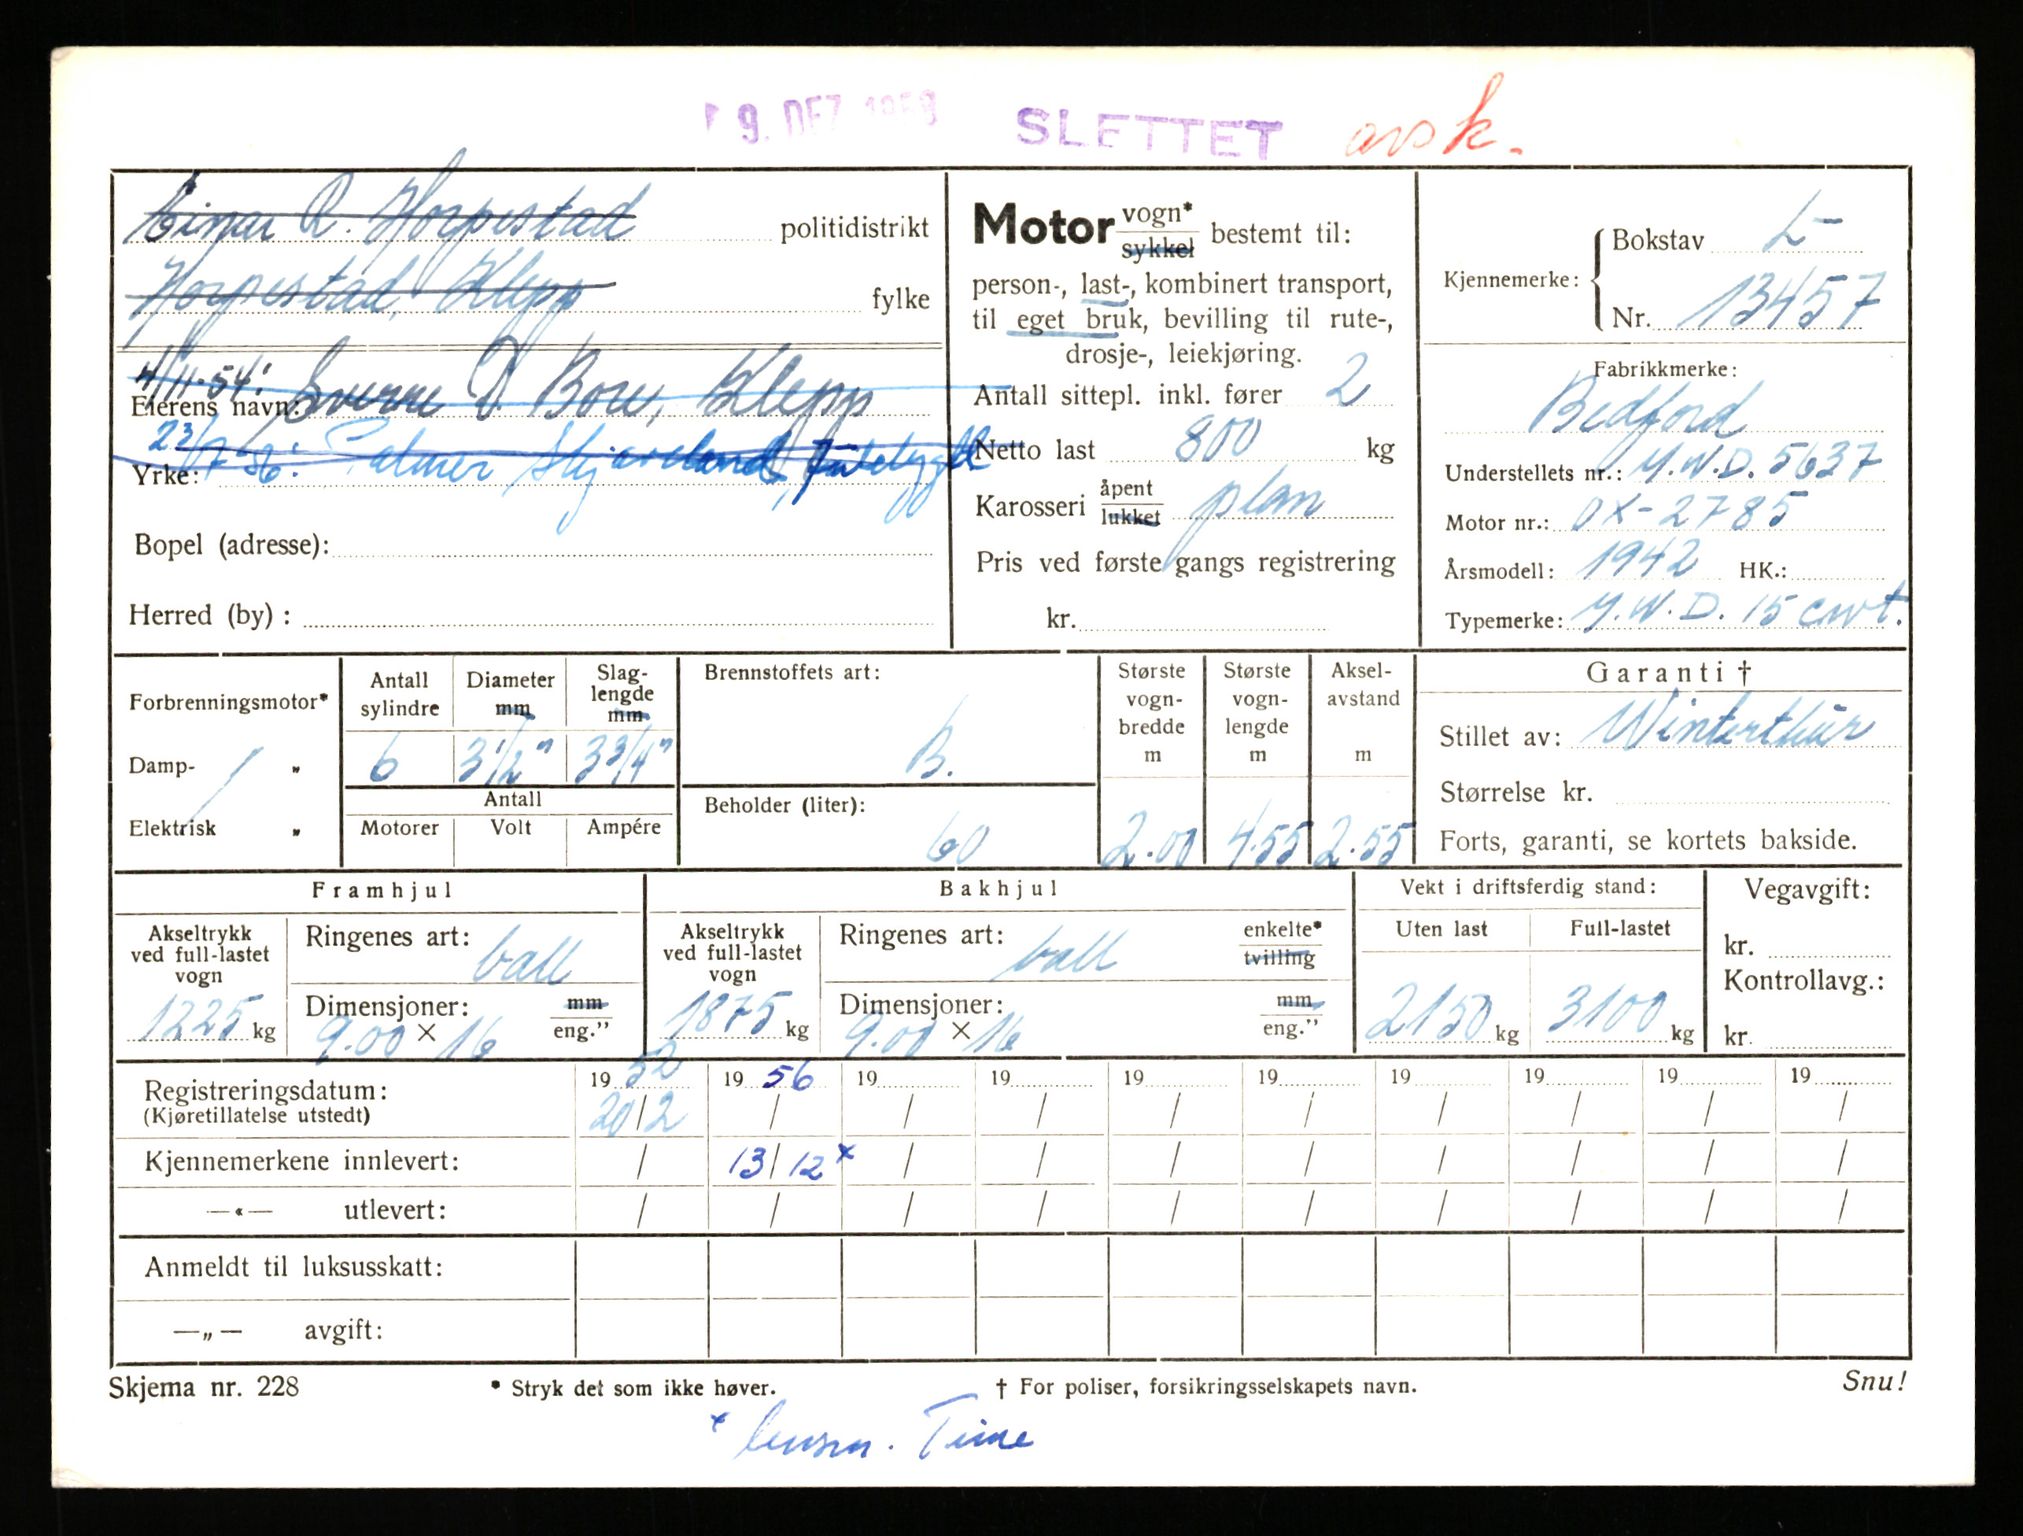 9. DEZ 1959 SLETTET avsk.
Einar R. Horpestad politidistrikt
Horpestad, Klepp fylke
4/11-54: Sverre D. Bore, Klepp
Eierens navn:
23/7-56: Palmer Skjæveland,
Yrke:
Bopel (adresse):
Herred (by) :
Motor vogn* sykkel bestemt til:
person-, last-, kombinert transport,
til eget bruk, bevilling til rute-,
drosje-, leiekjøring.
Antall sittepl. inkl. fører 2
Netto last 800 kg
Karosseri åpent lukket plan
Pris ved første gangs registrering
kr.
Kjennemerke: Bokstav L-
Nr. 13457
Fabrikkmerke:
Bedford
Understellets nr.: Y.W.D. 5637
Motor nr.: OX-2785
Årsmodell: 1942 HK.:
Typemerke: Y.W.D. 15 cwt.
Forbrenningsmotor*
Damp- "
Elektrisk "
Antall sylindre 6
Diameter mm 3 1/2"
Slaglengde mm 3 3/4"
Antall
Motorer Volt Ampére
Brennstoffets art:
B.
Beholder (liter):
60
Største vognbredde m 2.00
Største vognlengde m 4.55
Akselavstand m 2.55
Garanti †
Stillet av: Winterthür
Størrelse kr.
Forts, garanti, se kortets bakside.
Framhjul
Akseltrykk ved full-lastet vogn 1225 kg
Ringenes art: ball
Dimensjoner: mm eng."
9.00 × 16
Bakhjul
Akseltrykk ved full-lastet vogn 1875 kg
Ringenes art: ball enkelte* tvilling
Dimensjoner: mm eng."
9.00 × 16
Vekt i driftsferdig stand:
Uten last Full-lastet
2150 kg 3100 kg
Vegavgift:
kr.
Kontrollavg.:
kr.
Registreringsdatum: 19 50 19 56 19 19 19 19 19 19 19 19
(Kjøretillatelse utstedt) 20/2 / / / / / / / / /
Kjennemerkene innlevert: / 13/12 x / / / / / / / /
—«— utlevert: / / / / / / / / / /
Anmeldt til luksusskatt:
—„— avgift:
Skjema nr. 228 * Stryk det som ikke høver. † For poliser, forsikringsselskapets navn. Snu!
x lensm. Time